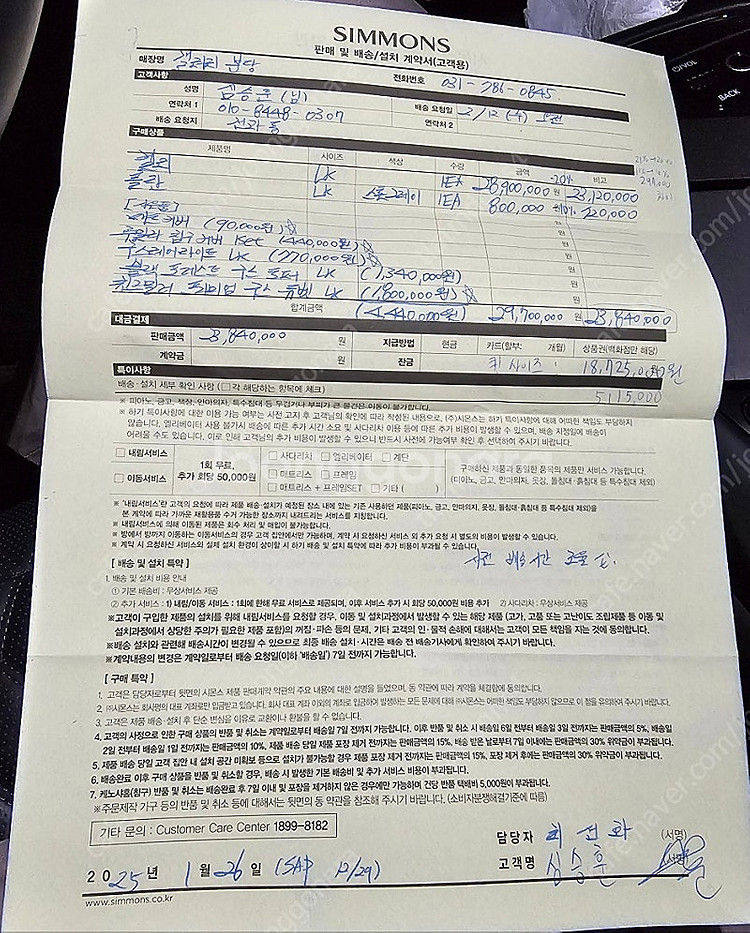 SIMMONS
판매 및 배송/설치 계약서(고객용)
매장명 갤러리 분당
전화번호 031-786-0845
고객사항
성명 심승훈 (님)
연락처 1 010-8448-0307
배송 요청일 2/12 (수) 오전
배송 요청지 전화 동
연락처 2
구매상품
제품명 사이즈 색상 수량 금액 -20% 비고
켈리 LK 1EA 28,900,000 원 23,120,000
플랑 LK 스톤그레이 1EA 800,000 원 720,000
[사은품]
커버 (90,000원)
침구 커버 1set (440,000원)
LK (770,000원)
블랙 포레스트 구스 토퍼 LK (1,340,000원)
프리미엄 구스 듀벳 LK (1,800,000원)
합계금액 (4,440,000원) 29,700,000 원 23,840,000
대금결제
판매금액 23,840,000 원 지급방법 현금 카드(할부: 개월) 상품권(백화점만 해당)
계약금 원 잔금 퀸 사이즈 : 18,725,000원
5,115,000
특이사항
배송·설치 세부 확인 사항 (□각 해당하는 항목에 체크)
※ 피아노, 금고, 책상, 안마의자, 옷장, 돌침대·흙침대 등 무겁거나 부피가 큰 물건은 이동이 불가합니다.
※ 하기 특이사항에 대한 이용 가능 여부는 사전 고지 후 고객님의 확인에 따라 작성된 내용으로, (주)시몬스는 하기 특이사항에 대해 어떠한 책임도 부담하지
않습니다. 엘리베이터 사용 불가시 배송에 따른 추가 시간 소요 및 사다리차 이용 등에 따른 추가 비용이 발생할 수 있으며, 배송 지정일에 배송이
어려울 수도 있습니다. 이로 인해 고객님의 추가 비용이 발생할 수 있으니 반드시 사전에 가능여부 확인 후 선택하여 주시기 바랍니다.
□ 내림서비스 □ 사다리차 □ 엘리베이터 □ 계단
□ 이동서비스 1회 무료, 추가 회당 50,000원 □ 매트리스 □ 프레임
□ 매트리스 + 프레임SET □ 기타 ( )
구매하신 제품과 동일한 품목의 제품만 서비스 가능합니다.
(피아노, 금고, 안마의자, 옷장, 돌침대·흙침대 등 특수침대 제외)
※ '내림서비스'란 고객의 요청에 따라 제품 배송·설치가 예정된 장소 내에 있는 기존 사용하던 제품(피아노, 금고, 안마의자, 옷장, 돌침대·흙침대 등 특수침대 제외)을
본 계약에 따라 가까운 재활용품 수거 가능한 장소까지 내려드리는 서비스를 지칭합니다.
※ 내림서비스에 의해 이동된 제품은 회수 처리 및 매입이 불가능합니다.
※ 방에서 방까지 이동하는 이동서비스의 경우 고객 집안에서만 가능하며, 계약 시 요청하신 서비스 외 추가 요청 시 별도의 비용이 발생할 수 있습니다.
※ 계약 시 요청하신 서비스와 실제 설치 환경이 상이할 시 하기 배송 및 설치 특약에 따라 추가 비용이 부과될 수 있습니다.
사전 배송시간 조율 要
[ 배송 및 설치 특약 ]
1. 배송 및 설치 비용 안내
① 기본 배송비 : 무상서비스 제공
② 추가 서비스 : 1) 내림/이동 서비스 : 1회에 한해 무료 서비스로 제공되며, 이후 서비스 추가 시 회당 50,000원 비용 추가 2) 사다리차 : 무상서비스 제공
※고객이 구입한 제품의 설치를 위해 내림서비스를 요청할 경우, 이동 및 설치과정에서 발생할 수 있는 해당 제품 (고가, 고물 또는 고난이도 조립제품 등 이동 및
설치과정에서 상당한 주의가 필요한 제품 포함)의 꺼짐·파손 등의 문제, 기타 고객의 인·물적 손해에 대해서는 고객이 모든 책임을 지는 것에 동의합니다.
※배송 설치와 관련해 배송시간이 변경될 수 있으므로 최종 배송 설치·시간은 배송 전 배송기사에게 확인하여 주시기 바랍니다.
※계약내용의 변경은 계약일로부터 배송 요청일(이하 '배송일') 7일 전까지 가능합니다.
[ 구매 특약 ]
1. 고객은 담당자로부터 뒷면의 시몬스 제품 판매계약 약관의 주요 내용에 대한 설명을 들었으며, 동 약관에 따라 계약을 체결함에 동의합니다.
2. ㈜시몬스는 회사명의 대표 계좌로만 입금받고 있습니다. 회사 대표 계좌 이외의 계좌로 입금하여 발생하는 모든 문제에 대해 ㈜시몬스는 어떠한 책임도 부담하지 않으므로 이 점을 유의하여 주시기 바랍니다.
3. 고객은 제품 배송·설치 후 단순 변심을 이유로 교환이나 환불을 할 수 없습니다.
4. 고객의 사정으로 인한 구매 상품의 반품 및 취소는 계약일로부터 배송일 7일 전까지 가능합니다. 이후 반품 및 취소 시 배송일 6일 전부터 배송일 3일 전까지는 판매금액의 5%, 배송일
2일 전부터 배송일 1일 전까지는 판매금액의 10%, 제품 배송 당일 제품 포장 제거 전까지는 판매금액의 15%, 배송 받은 날로부터 7일 이내에는 판매금액의 30% 위약금이 부과됩니다.
5. 제품 배송 당일 고객 집안 내 설치 공간 미확보 등으로 설치가 불가능할 경우 제품 포장 제거 전까지는 판매금액의 15%, 포장 제거 후에는 판매금액의 30% 위약금이 부과됩니다.
6. 배송완료 이후 구매 상품을 반품 및 취소할 경우, 배송 시 발생한 기본 배송비 및 추가 서비스 비용이 부과됩니다.
7. 케노샤홈(침구) 반품 및 취소는 배송완료 후 7일 이내 및 포장을 제거하지 않은 경우에만 가능하며 건당 반품 택배비 5,000원이 부과됩니다.
※주문제작 가구 등의 반품 및 취소 등에 대해서는 뒷면의 동 약관을 참조해 주시기 바랍니다. (소비자분쟁해결기준에 따름)
기타 문의 : Customer Care Center 1899-8182
담당자 최선화 (서명)
2025년 1월 26일 (SAP 12/29) 고객명 심승훈 (서명)
www.simmons.co.kr
VOL
BACK